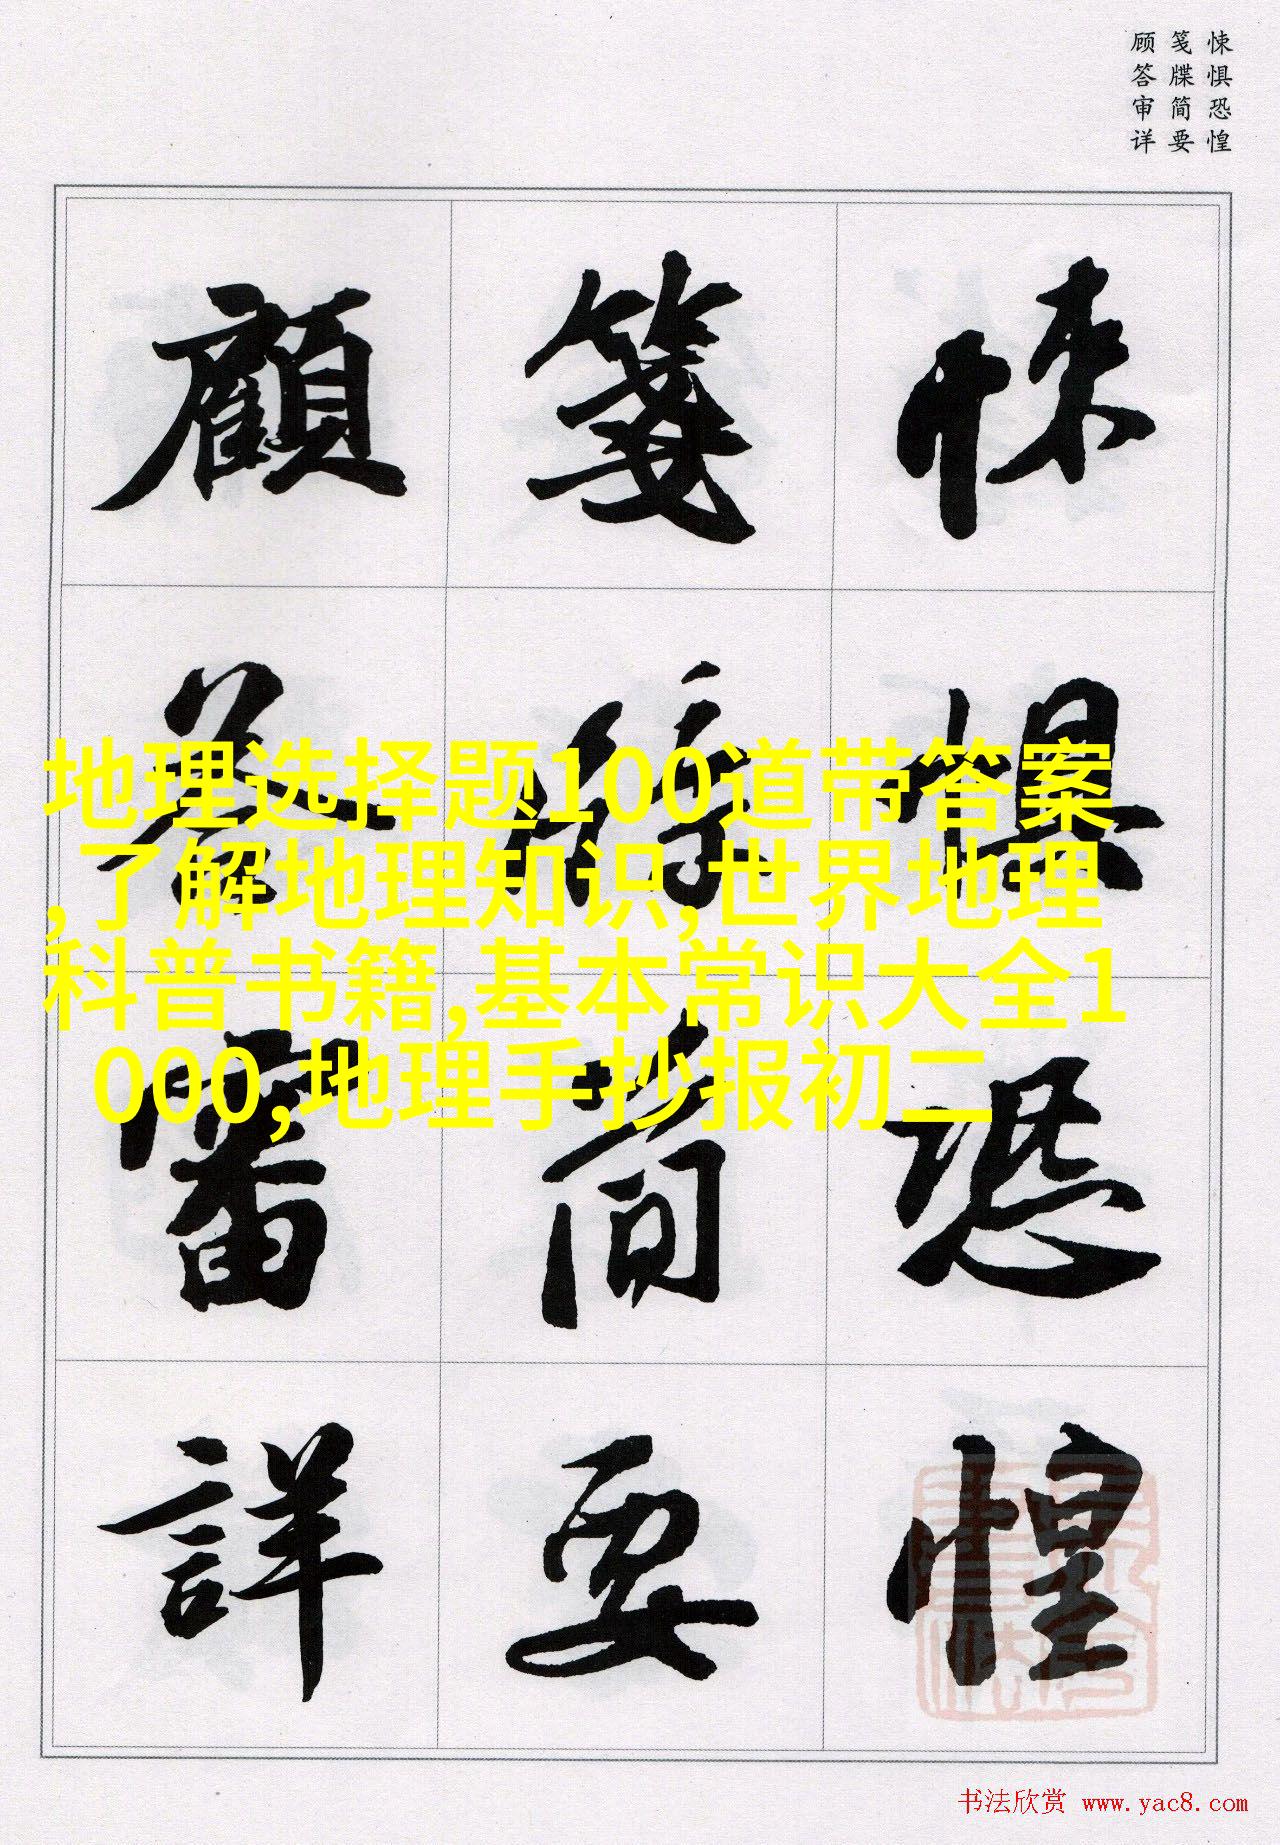 悚惧恐惶
笺牒简要
顾答审详
悚惧恐惶
笺牒简要
顧答審詳
地理选择题100道带答案
,了解地理知识,世界地理
科普书籍,基本常识大全1
000,地理手抄报初二
书法欣赏 www.yac8.com